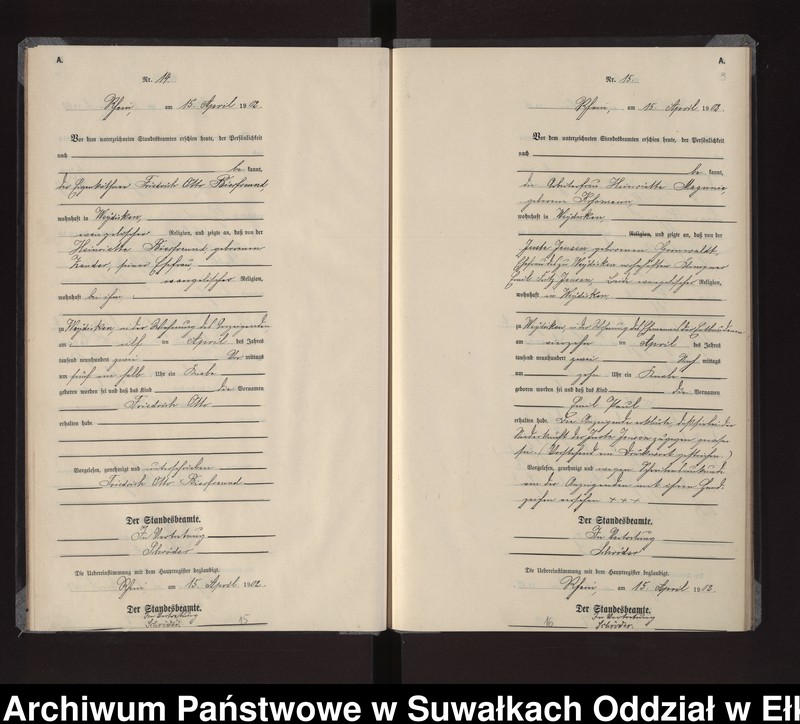 A.
Nr. 14.
Rhein, am 15. April 1902.
Vor dem unterzeichneten Standesbeamten erschien heute, der Persönlichkeit
nach
be kannt,
der Eigenkäthner Friedrich Otto
wohnhaft in Weydicken,
evangelischer Religion, und zeigte an, daß von der
Heinriette geborenen
seiner Ehefrau,
evangelischer Religion,
wohnhaft bei ihm,
zu Weydicken, in der Wohnung des Anzeigenden
am elften April des Jahres
tausend neunhundert zwei Vor mittags
um fünf ein halb Uhr ein Knabe
geboren worden sei und daß das Kind die Vornamen
Friedrich Otto
erhalten habe.
Vorgelesen, genehmigt und unterschrieben
Friedrich Otto
Der Standesbeamte.
In Vertretung
Schröder
Die Uebereinstimmung mit dem Hauptregister beglaubigt.
Rhein, am 15. April 1902.
Der Standesbeamte.
In Vertretung
Schröder.
15
A.
3
Nr. 15.
Rhein, am 15. April 1902.
Vor dem unterzeichneten Standesbeamten erschien heute, der Persönlichkeit
nach
be kannt,
die Arbeiterfrau Heinriette
geborene
wohnhaft in Weydicken
Religion, und zeigte an, daß von der
Jensen geborenen Grunwaldt,
Ehefrau des zu Weydicken wohnhaften
Emil Fritz Jensen, beide evangelischer Religion,
wohnhaft in Weydicken,
zu Weydicken, in der Wohnung des Ehemannes der
am vierzehn ten April des Jahres
tausend neunhundert zwei Nach mittags
um zehn Uhr ein Knabe
geboren worden sei und daß das Kind die Vornamen
Emil Paul
erhalten habe. Die Anzeigende erklärte, daß sie bei der
Niederkunft der Jensen zugegen gewesen
sei. (Vorstehend ein Druckwort gestrichen.)
Vorgelesen, genehmigt und wegen Schreibensunkunde
von der Anzeigenden mit ihrem Hand-
zeichen versehen + + +
Der Standesbeamte.
In Vertretung
Schröder
Die Uebereinstimmung mit dem Hauptregister beglaubigt.
Rhein, am 15. April 1902.
Der Standesbeamte.
In Vertretung
Schröder.
16
Archiwum Państwowe w Suwałkach Oddział w Eł